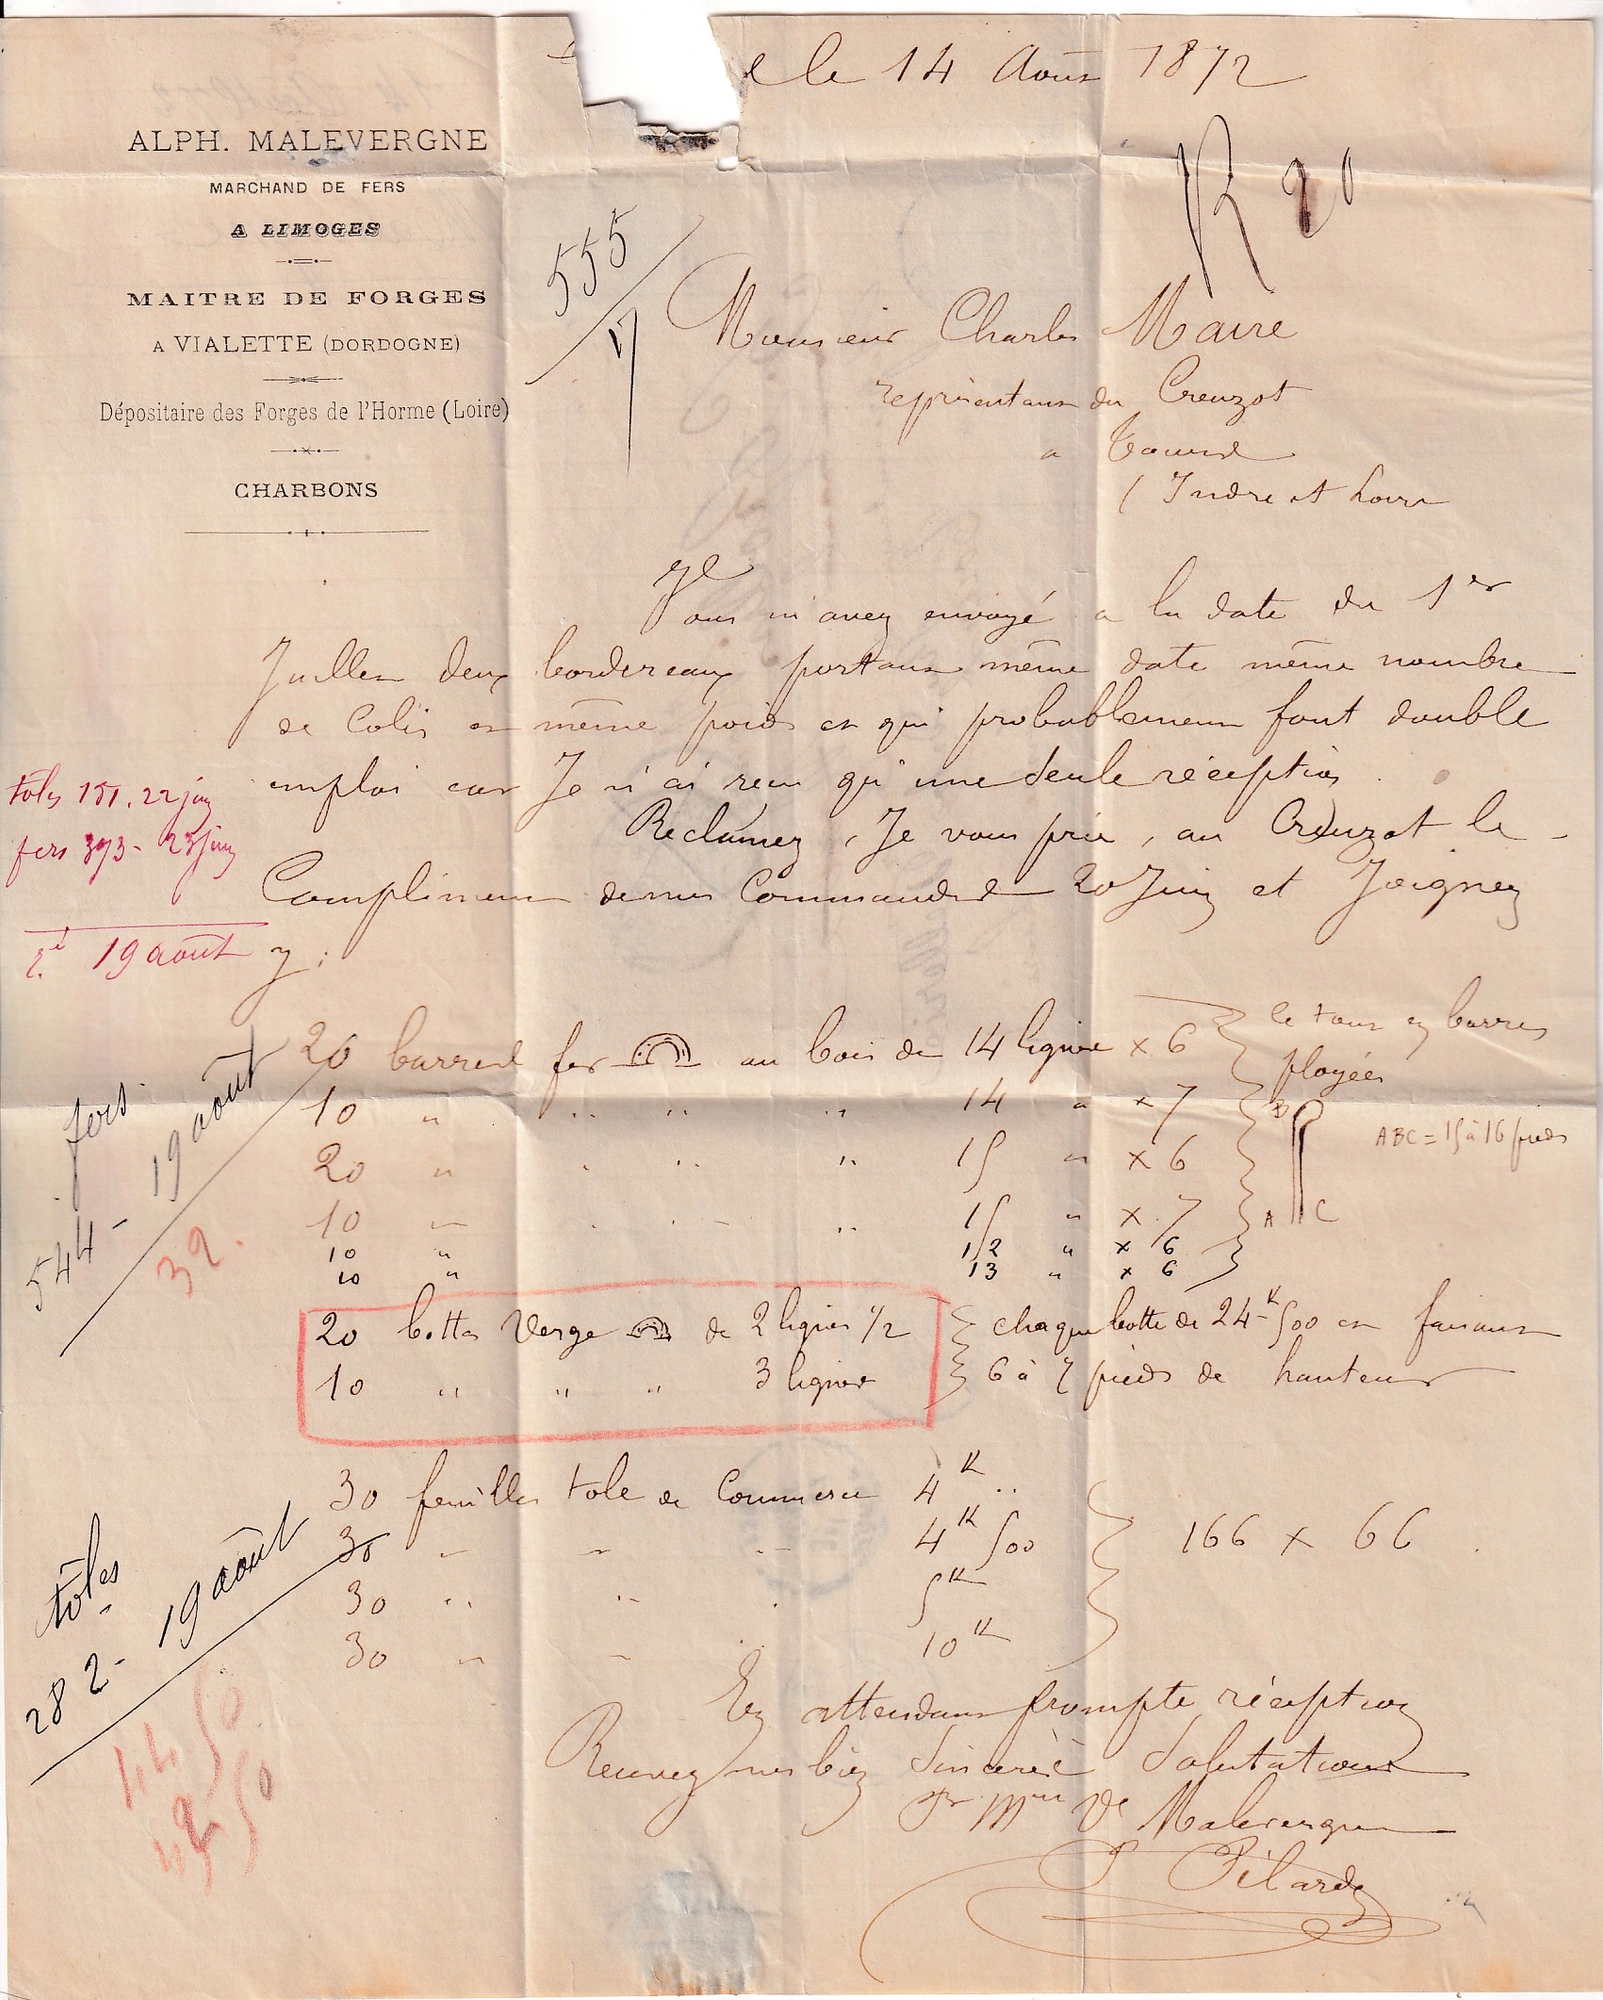 e le 14 Août 1872
ALPH. MALEVERGNE
MARCHAND DE FERS
A LIMOGES
MAITRE DE FORGES
A VIALETTE (DORDOGNE)
Dépositaire des Forges de l'Horme (Loire)
CHARBONS
R 20
555
17
Monsieur Charles Maire
représentant du Creuzot
a Tours
( Indre et Loire
Vous m'avez envoyé a la date du 1er
Juillet deux bordereaux portant même date même nombre
de Colis et même poids et qui probablement font double
emploi car Je n'ai reçu qu'une seule réception.
Reclamez, Je vous prie, au Creuzot le
Complément de mes Commandes 20 Juin et Joignez
y :
tôles 151. 22 juin
fers 393 - 23 juin
19 août
20 barres fer au bois de 14 lignes x 6
10 " " " " 14 " x 7
20 " " " " 15 " x 6
10 " " " " 15 " x 7
10 " 12 " x 6
10 " 13 " x 6
le tout en barres
ployées
B
A C
ABC = 15 à 16 pieds
fers
544 - 19 août
32.
20 bottes Verge de 2 lignes 1/2
10 " " " 3 lignes
chaque botte de 24K 500 et faisant
6 à 7 pieds de hauteur
30 feuilles tole de Commerce 4K ..
30 " " " 4K 500
30 " " 5K
30 " " 10K
166 x 66
tôles
282 - 19 août
En attendant prompte réception
Recevez mes bien Sincères Salutations
Pr Mme Ve Malevergne
P Pélard